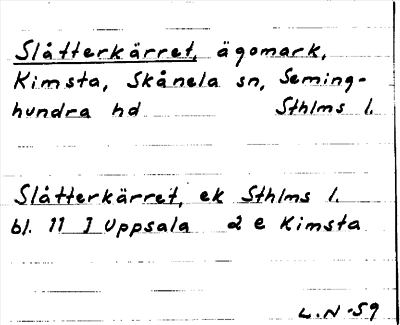 Slåtterkärret, ägomark,
Kimsta, Skånela sn, Seming-
hundra hd Sthlms l.
Slåtterkärret, ek Sthlms l.
bl. 11 I Uppsala 2 e Kimsta
L.N-59